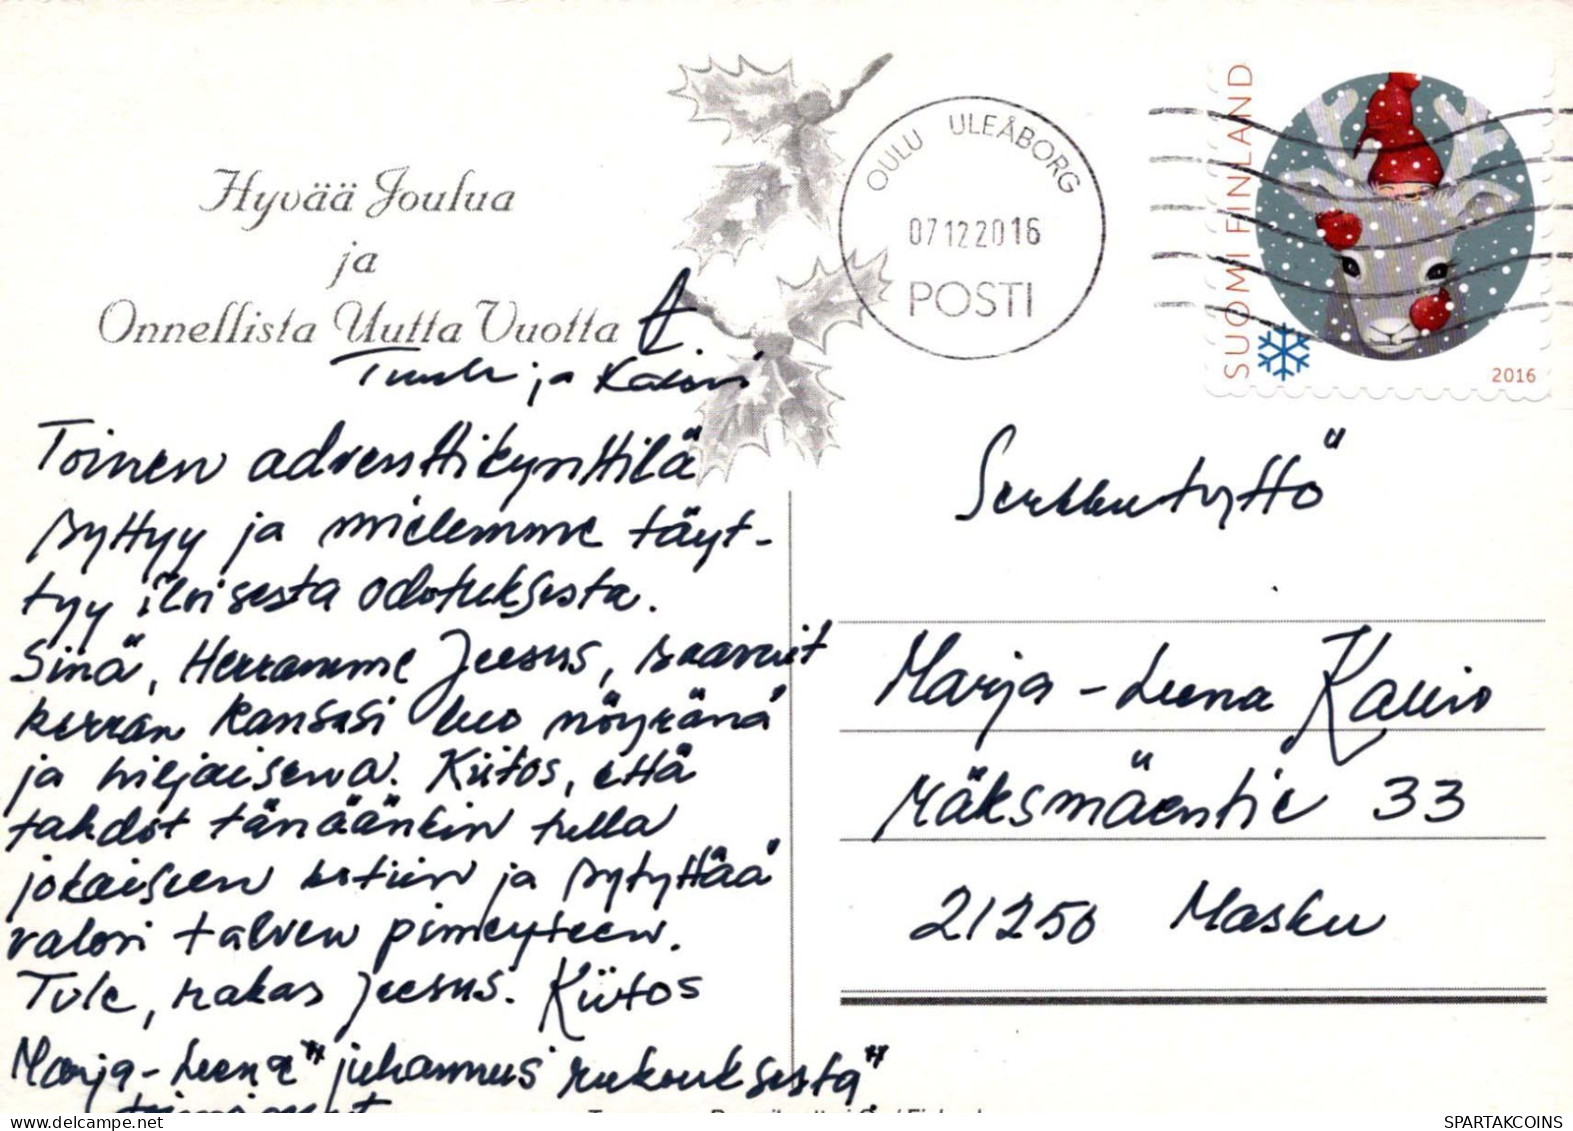 Hyvää Joulua
ja
Onnellista Uutta Vuotta
Tuula ja Kalevi
Toinen adventtikynttilä
syttyy ja mielemme täyt-
tyy iloisesta odotuksesta.
Sinä, Herramme Jeesus, saavuit
kerran kansasi luo nöyränä
ja hiljaisena. Kiitos, että
tahdot tänäänkin tulla
jokaiseen kotiin ja sytyttää
valon talven pimeyteen.
Tule, rakas Jeesus. Kiitos
Marja-Leena "juhannus rukouksesta"
OULU ULEÅBORG
07122016
POSTI
SUOMI FINLAND
2016
Serkkutyttö
Marja-Leena Kallio
Räksmäentie 33
21250 Masku
delcampe.net
SPARTAKCOINS